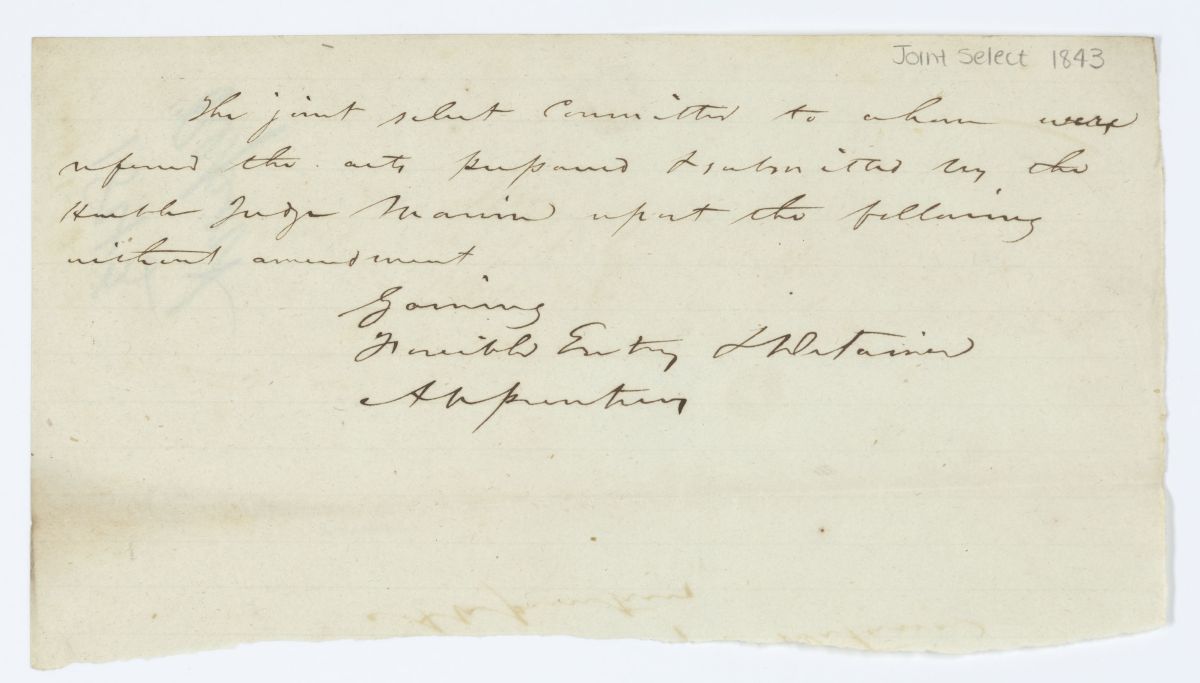 Joint Select 1843
The joint select Committee to whom were
referred the acts prepared & submitted by the
Honble Judge Marvin report the following
without amendment
Gaming
Forcible Entry & Detainer
Apprentices